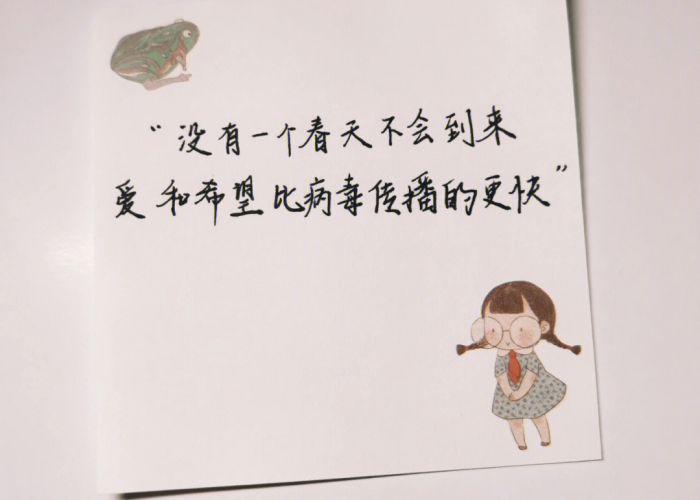 “没有一个春天不会到来
爱和希望比病毒传播的更快”